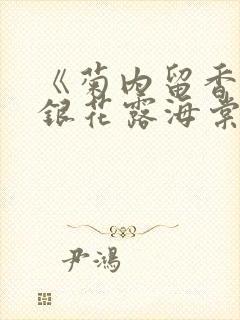 《菊内留香
银花露海棠
尹鴻